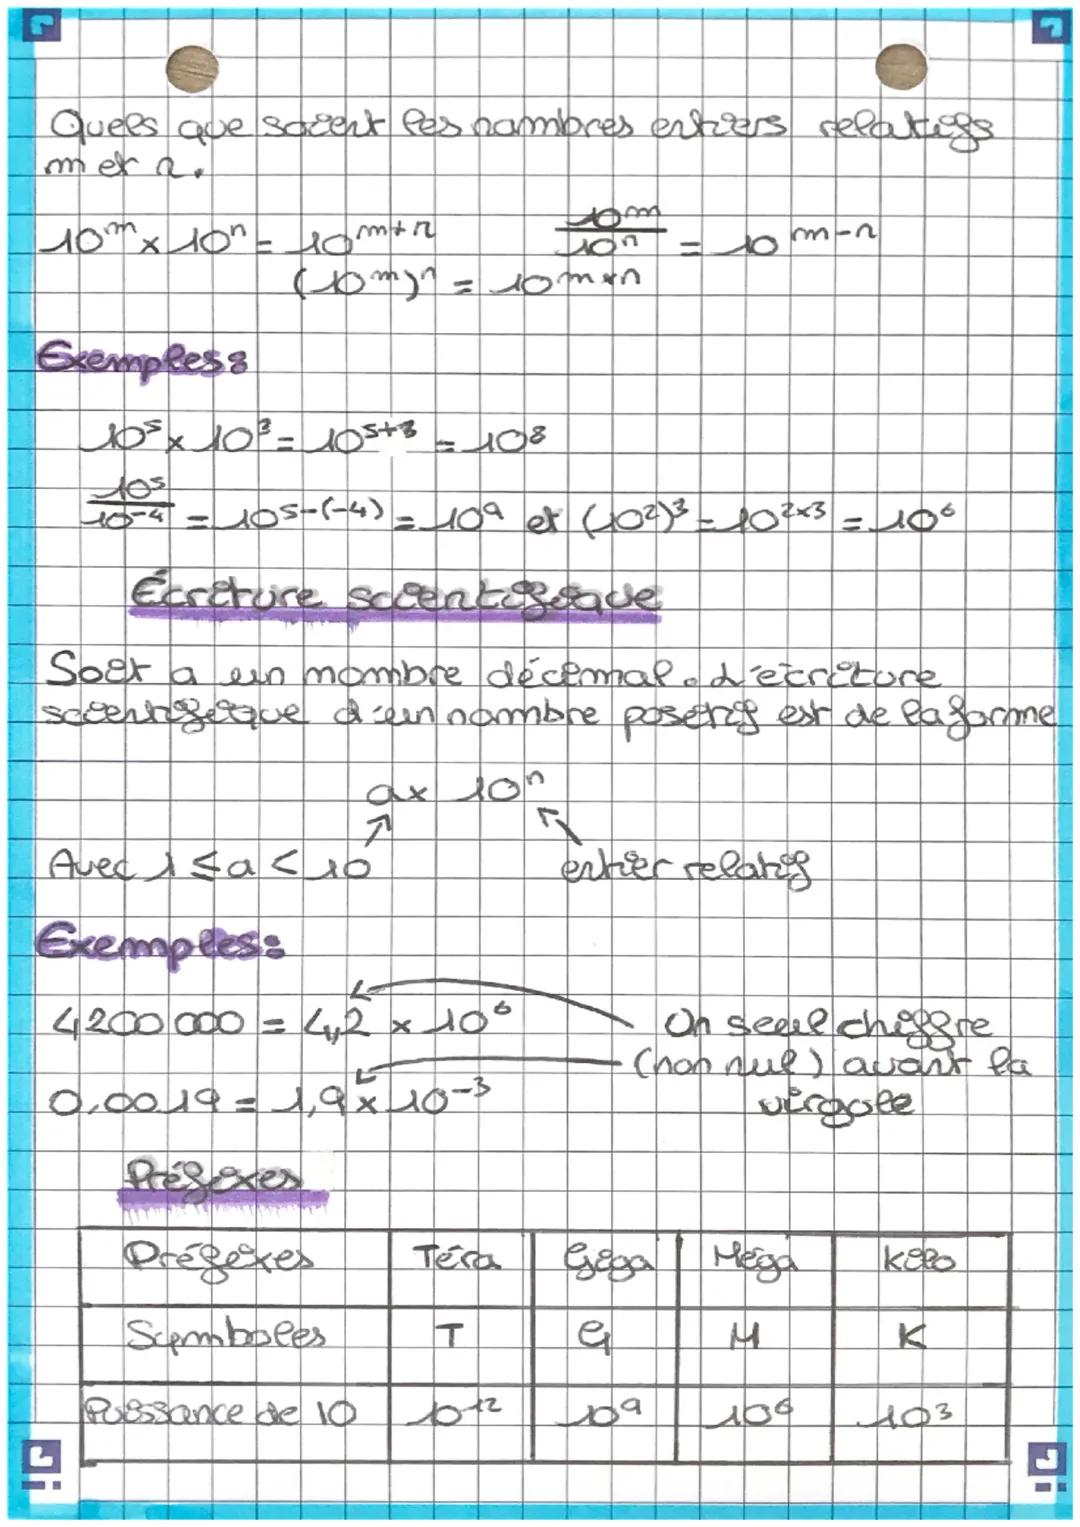 Quels que soient les nombres entiers relatifs
m et n.
10^m × 10^n = 10^(m+n)    10^m / 10^n = 10^(m-n)
(10^m)^n = 10^(m×n)
Exemples:
10^5 × 10^3 = 10^(5+3) = 10^8
10^5 / 10^-4 = 10^(5-(-4)) = 10^9 et (10^2)^3 = 10^(2×3) = 10^6
Écriture scientifique
Soit a un nombre décimal. L'écriture
scientifique d'un nombre positif est de la forme
a × 10^n
Avec 1 ≤ a < 10    entier relatif
Exemples:
4200 000 = 4,2 × 10^6    Un seul chiffre
(non nul) avant la
0,0019 = 1,9 × 10^-3    virgule
Préfixes
Préfixes    Téra    Giga    Méga    Kilo
Symboles    T    G    M    K
Puissance de 10    10^12    10^9    10^6    10^3